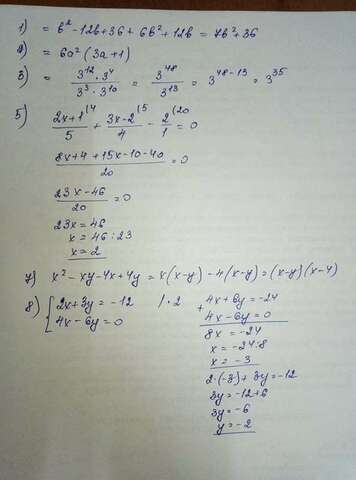 1) = b² - 12b + 36 + 6b² + 12b = 7b² + 36
= 6a² (3a + 1)
3) = 3¹² · 3⁴ / 3³ · 3¹⁰ = 3⁴⁸ / 3¹³ = 3⁴⁸⁻¹³ = 3³⁵
5) 2x+1⁽⁴ / 5 + 3x-2⁽⁵ / 4 - 2⁽²⁰ / 1 = 0
8x + 4 + 15x - 10 - 40 / 20 = 0
23x - 46 / 20 = 0
23x = 46
x = 46 : 23
x = 2
7) x² - xy - 4x + 4y = x(x-y) - 4(x-y) = (x-y)(x-4)
8) { 2x + 3y = -12 | · 2
4x - 6y = 0
+ 4x + 6y = -24
4x - 6y = 0
8x = -24
x = -24:8
x = -3
2·(-3) + 3y = -12
3y = -12+6
3y = -6
y = -2